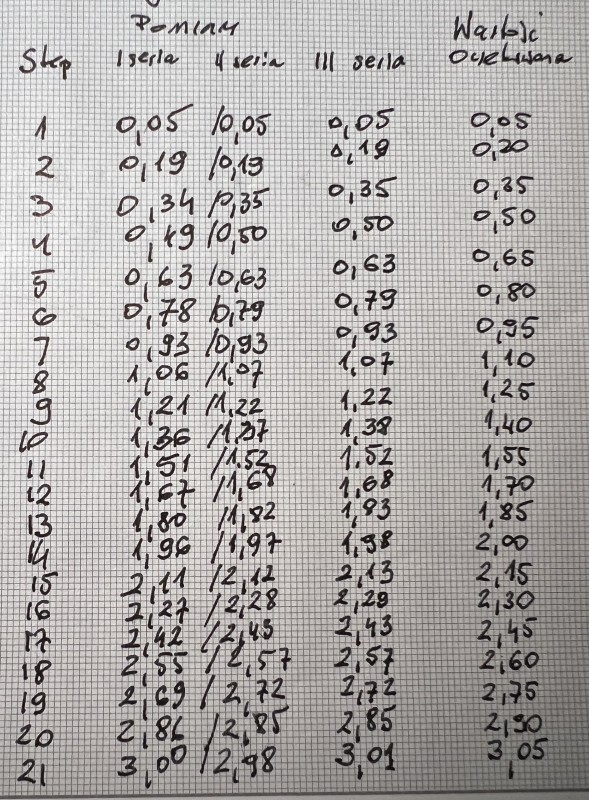 Pomiary Wartość
Step I seria II seria III seria Oczekiwana
1 0,05 /0,05 0,05 0,05
2 0,19 /0,19 0,19 0,20
3 0,34 /0,35 0,35 0,35
4 0,49 /0,50 0,50 0,50
5 0,63 /0,63 0,63 0,65
6 0,78 /0,79 0,79 0,80
7 0,93 /0,93 0,93 0,95
8 1,06 /1,07 1,07 1,10
9 1,21 /1,22 1,22 1,25
10 1,36 /1,37 1,38 1,40
11 1,51 /1,52 1,52 1,55
12 1,67 /1,68 1,68 1,70
13 1,80 /1,82 1,83 1,85
14 1,96 /1,97 1,98 2,00
15 2,11 /2,12 2,13 2,15
16 2,27 /2,28 2,29 2,30
17 2,42 /2,43 2,43 2,45
18 2,55 /2,57 2,57 2,60
19 2,69 /2,72 2,72 2,75
20 2,86 /2,85 2,85 2,90
21 3,00 /2,98 3,01 3,05